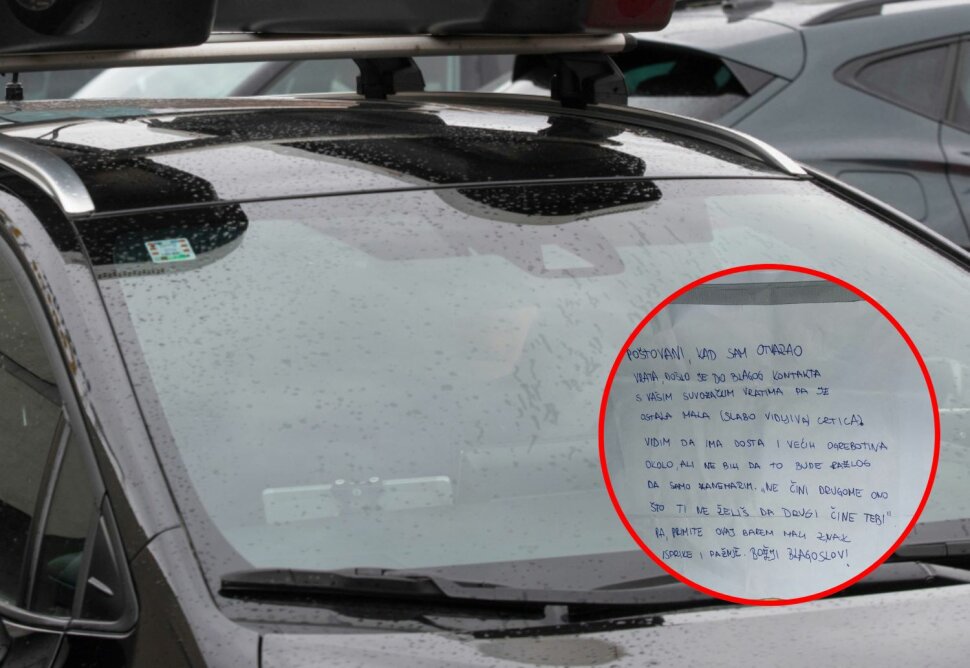 POŠTOVANI, KAD SAM OTVARAO
VRATA DOŠLO JE DO BLAGOG KONTAKTA
S VAŠIM SUVOZAČKIM VRATIMA DA JE
OSTALA MALA (SLABO VIDLJIVA) CRTICA.
VIDIM DA IMA DOSTA I VEĆIH OGREBOTINA
OKOLO, ALI NE BIH DA TO BUDE RAZLOG
DA SAMO ZANEMARIM. „NE ČINI DRUGOME ONO
ŠTO TI NE ŽELIŠ DA DRUGI ČINE TEBI"
PA, PRIMITE OVAJ BAREM MALI ZNAK
ISPRIKE I PAŽNJE. BOŽJI BLAGOSLOV!